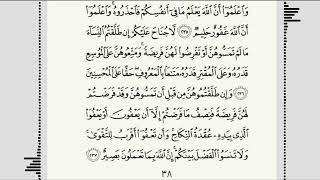 وَٱعْلَمُوٓا۟ أَنَّ ٱللَّهَ يَعْلَمُ مَا فِىٓ أَنفُسِكُمْ فَٱحْذَرُوهُ وَٱعْلَمُوٓا۟
أَنَّ ٱللَّهَ غَفُورٌ حَلِيمٌ ٢٣٥ لَّا جُنَاحَ عَلَيْكُمْ إِن طَلَّقْتُمُ ٱلنِّسَآءَ
مَا لَمْ تَمَسُّوهُنَّ أَوْ تَفْرِضُوا۟ لَهُنَّ فَرِيضَةً وَمَتِّعُوهُنَّ عَلَى ٱلْمُوسِعِ
قَدَرُهُۥ وَعَلَى ٱلْمُقْتِرِ قَدَرُهُۥ مَتَٰعًۢا بِٱلْمَعْرُوفِ حَقًّا عَلَى ٱلْمُحْسِنِينَ
٢٣٦ وَإِن طَلَّقْتُمُوهُنَّ مِن قَبْلِ أَن تَمَسُّوهُنَّ وَقَدْ فَرَضْتُمْ
لَهُنَّ فَرِيضَةً فَنِصْفُ مَا فَرَضْتُمْ إِلَّآ أَن يَعْفُونَ أَوْ يَعْفُوَا۟
ٱلَّذِى بِيَدِهِۦ عُقْدَةُ ٱلنِّكَاحِ وَأَن تَعْفُوٓا۟ أَقْرَبُ لِلتَّقْوَىٰ
وَلَا تَنسَوُا۟ ٱلْفَضْلَ بَيْنَكُمْ إِنَّ ٱللَّهَ بِمَا تَعْمَلُونَ بَصِيرٌ ٢٣٧
٣٨